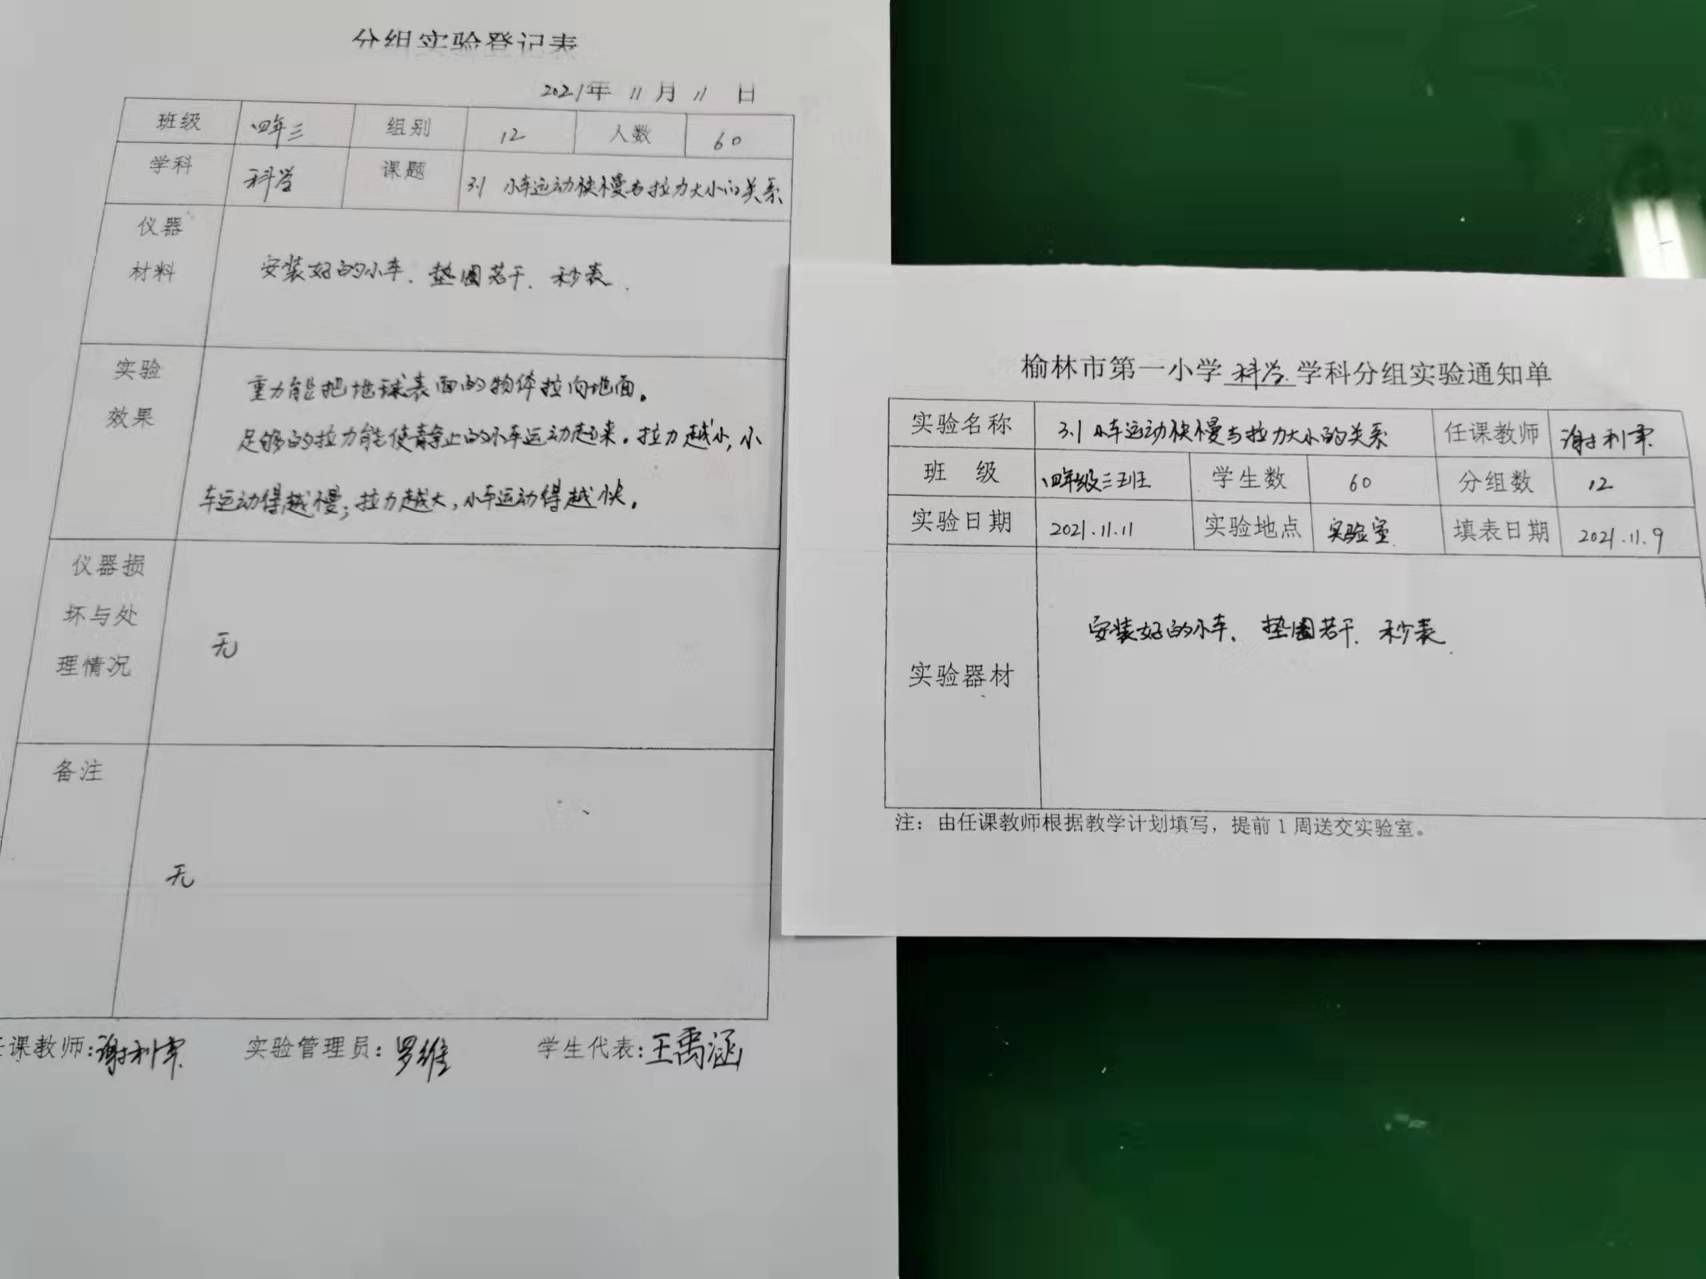 分组实验登记表
2021年 11 月 11 日
班级 四年三 组别 12 人数 60
学科 科学 课题 3.1 小车运动快慢与拉力大小的关系
仪器
材料
安装好的小车、垫圈若干、秒表.
实验
效果
重力能把地球表面的物体拉向地面。
足够的拉力能使静止的小车运动起来。拉力越小,小
车运动得越慢;拉力越大,小车运动得越快。
仪器损
坏与处
理情况
无
备注
无
任课教师:谢利军 实验管理员:罗维 学生代表:王禹涵
榆林市第一小学 科学 学科分组实验通知单
实验名称 3.1 小车运动快慢与拉力大小的关系 任课教师 谢利军
班 级 四年级三班 学生数 60 分组数 12
实验日期 2021.11.11 实验地点 实验室 填表日期 2021.11.9
实验器材 安装好的小车、垫圈若干、秒表.
注：由任课教师根据教学计划填写，提前 1 周送交实验室。